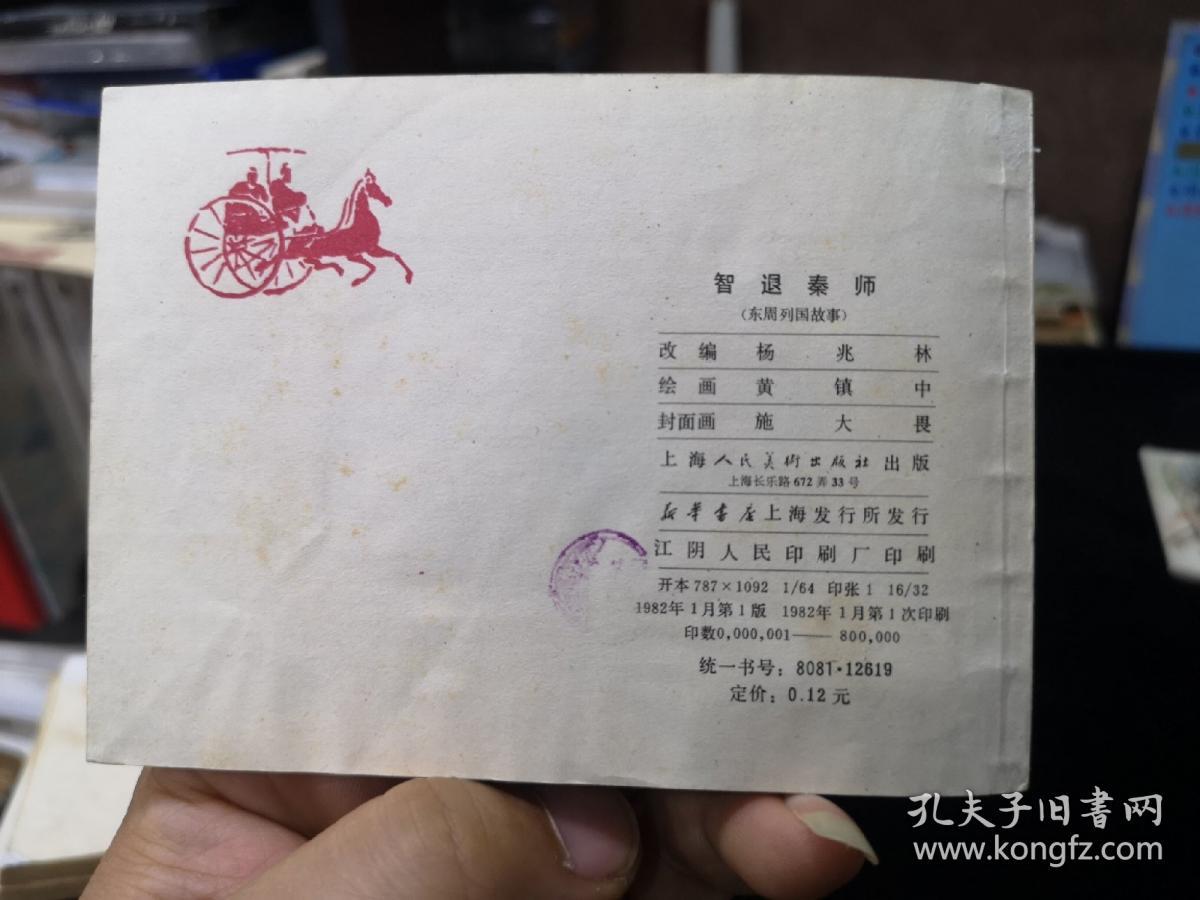 智退秦师
（东周列国故事）
改编 杨兆林
绘画 黄镇中
封面画 施大畏
上海人民美術出版社出版
上海长乐路672弄33号
新华書店上海发行所发行
江阴人民印刷厂印刷
开本 787×1092 1/64 印张1 16/32
1982年1月第1版 1982年1月第1次印刷
印数0,000,001——800,000
统一书号：8081·12619
定价：0.12元
孔夫子旧书网
www.kongfz.com